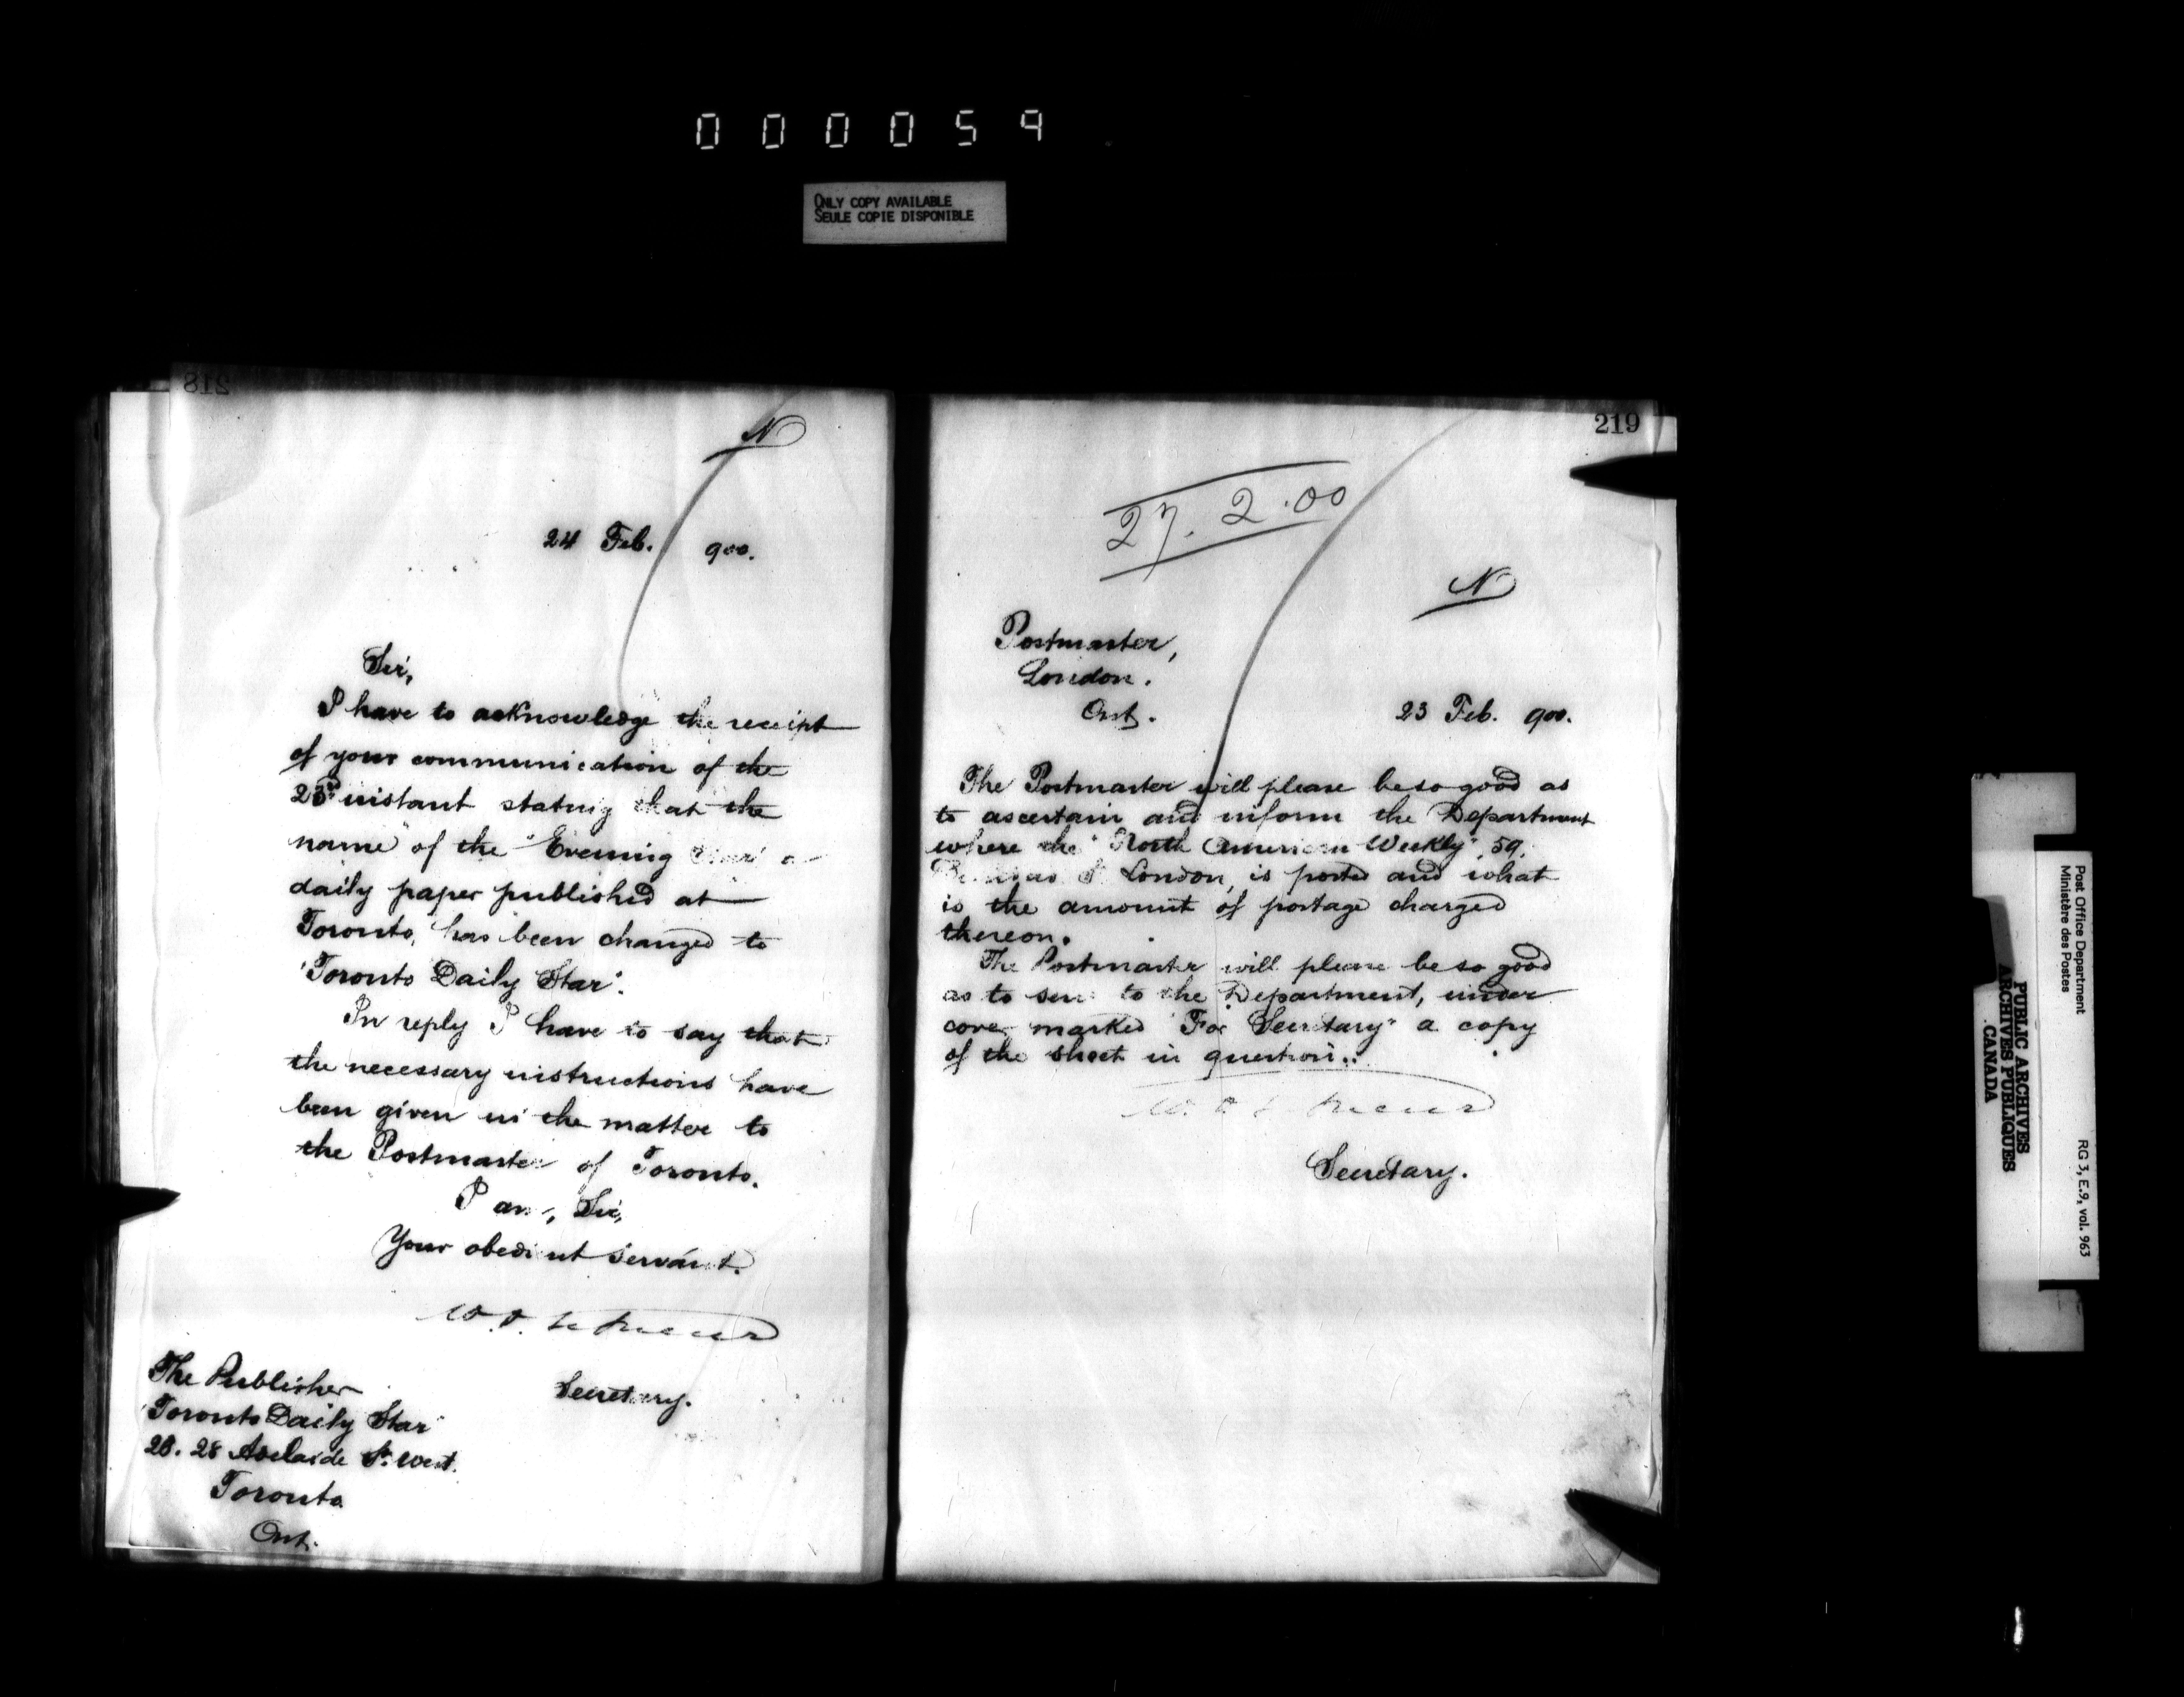 000059
ONLY COPY AVAILABLE
SEULE COPIE DISPONIBLE
218
N
24 Feb. 900.
Sir,
I have to acknowledge the receipt
of your communication of the
23rd instant stating that the
name of the "Evening Star" a
daily paper published at
Toronto, has been changed to
"Toronto Daily Star".
In reply I have to say that
the necessary instructions have
been given in the matter to
the Postmaster of Toronto.
I am, Sir,
Your obedient servant.
Secretary.
The Publisher
"Toronto Daily Star"
28 Adelaide St. West.
Toronto
Ont.
219
27.2.00
N
Postmaster,
London.
Ont.
23 Feb. 900.
The Postmaster will please be so good as
to ascertain and inform the Department
where the "North American Weekly", 59,
St London, is posted and what
is the amount of postage charged
thereon.
The Postmaster will please be so good
as to send to the Department, under
cover marked "For Secretary" a copy
of the sheet in question.
Secretary.
Post Office Department
Ministère des Postes
RG 3, E.9, vol. 963
PUBLIC ARCHIVES
ARCHIVES PUBLIQUES
CANADA